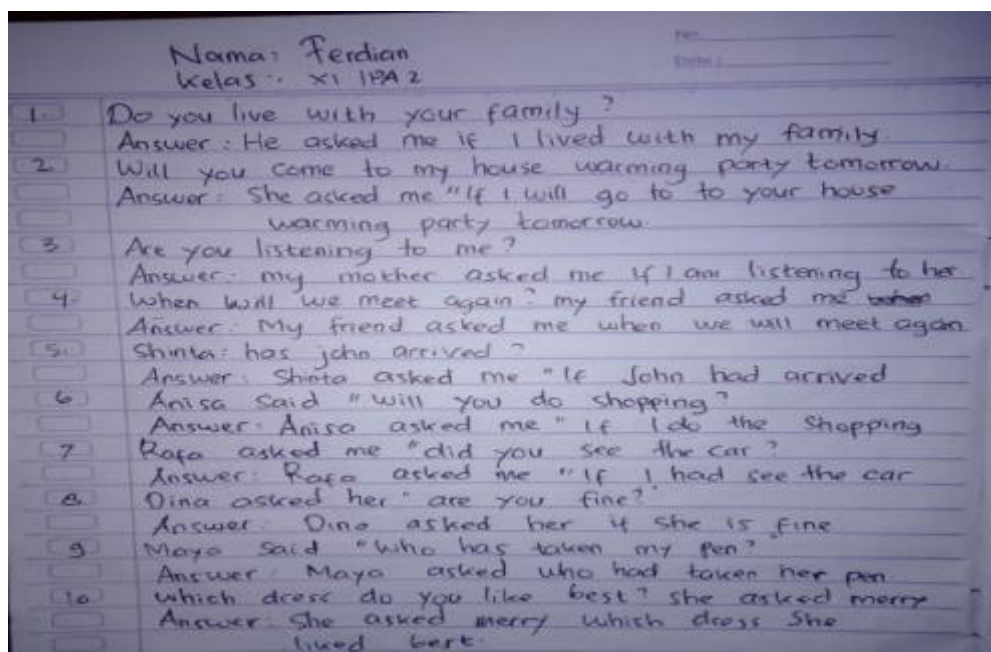 Nama: Ferdian
Kelas: XI IPA 2
1. Do you live with your family?
Answer: He asked me if I lived with my family.
2. Will you come to my house warming party tomorrow.
Answer: She asked me "If I will go to to your house
warming party tomorrow.
3 Are you listening to me?
Answer: my mother asked me if I am listening to her
4. When will we meet again? my friend asked me
Answer: My friend asked me when we will meet again
5. Shinta: has john arrived?
Answer: Shinta asked me "If John had arrived
6 Anisa said "will you do shopping?
Answer: Anisa asked me "If I do the shopping
7 Rafa asked me "did you see the car?
Answer: Rafa asked me "If I had see the car
8. Dina asked her "are you fine?"
Answer: Dina asked her if she is fine
9 Maya said "Who has taken my pen?
Answer: Maya asked who had taken her pen
10 which dress do you like best? she asked merry
Answer: She asked merry which dress She
liked best.